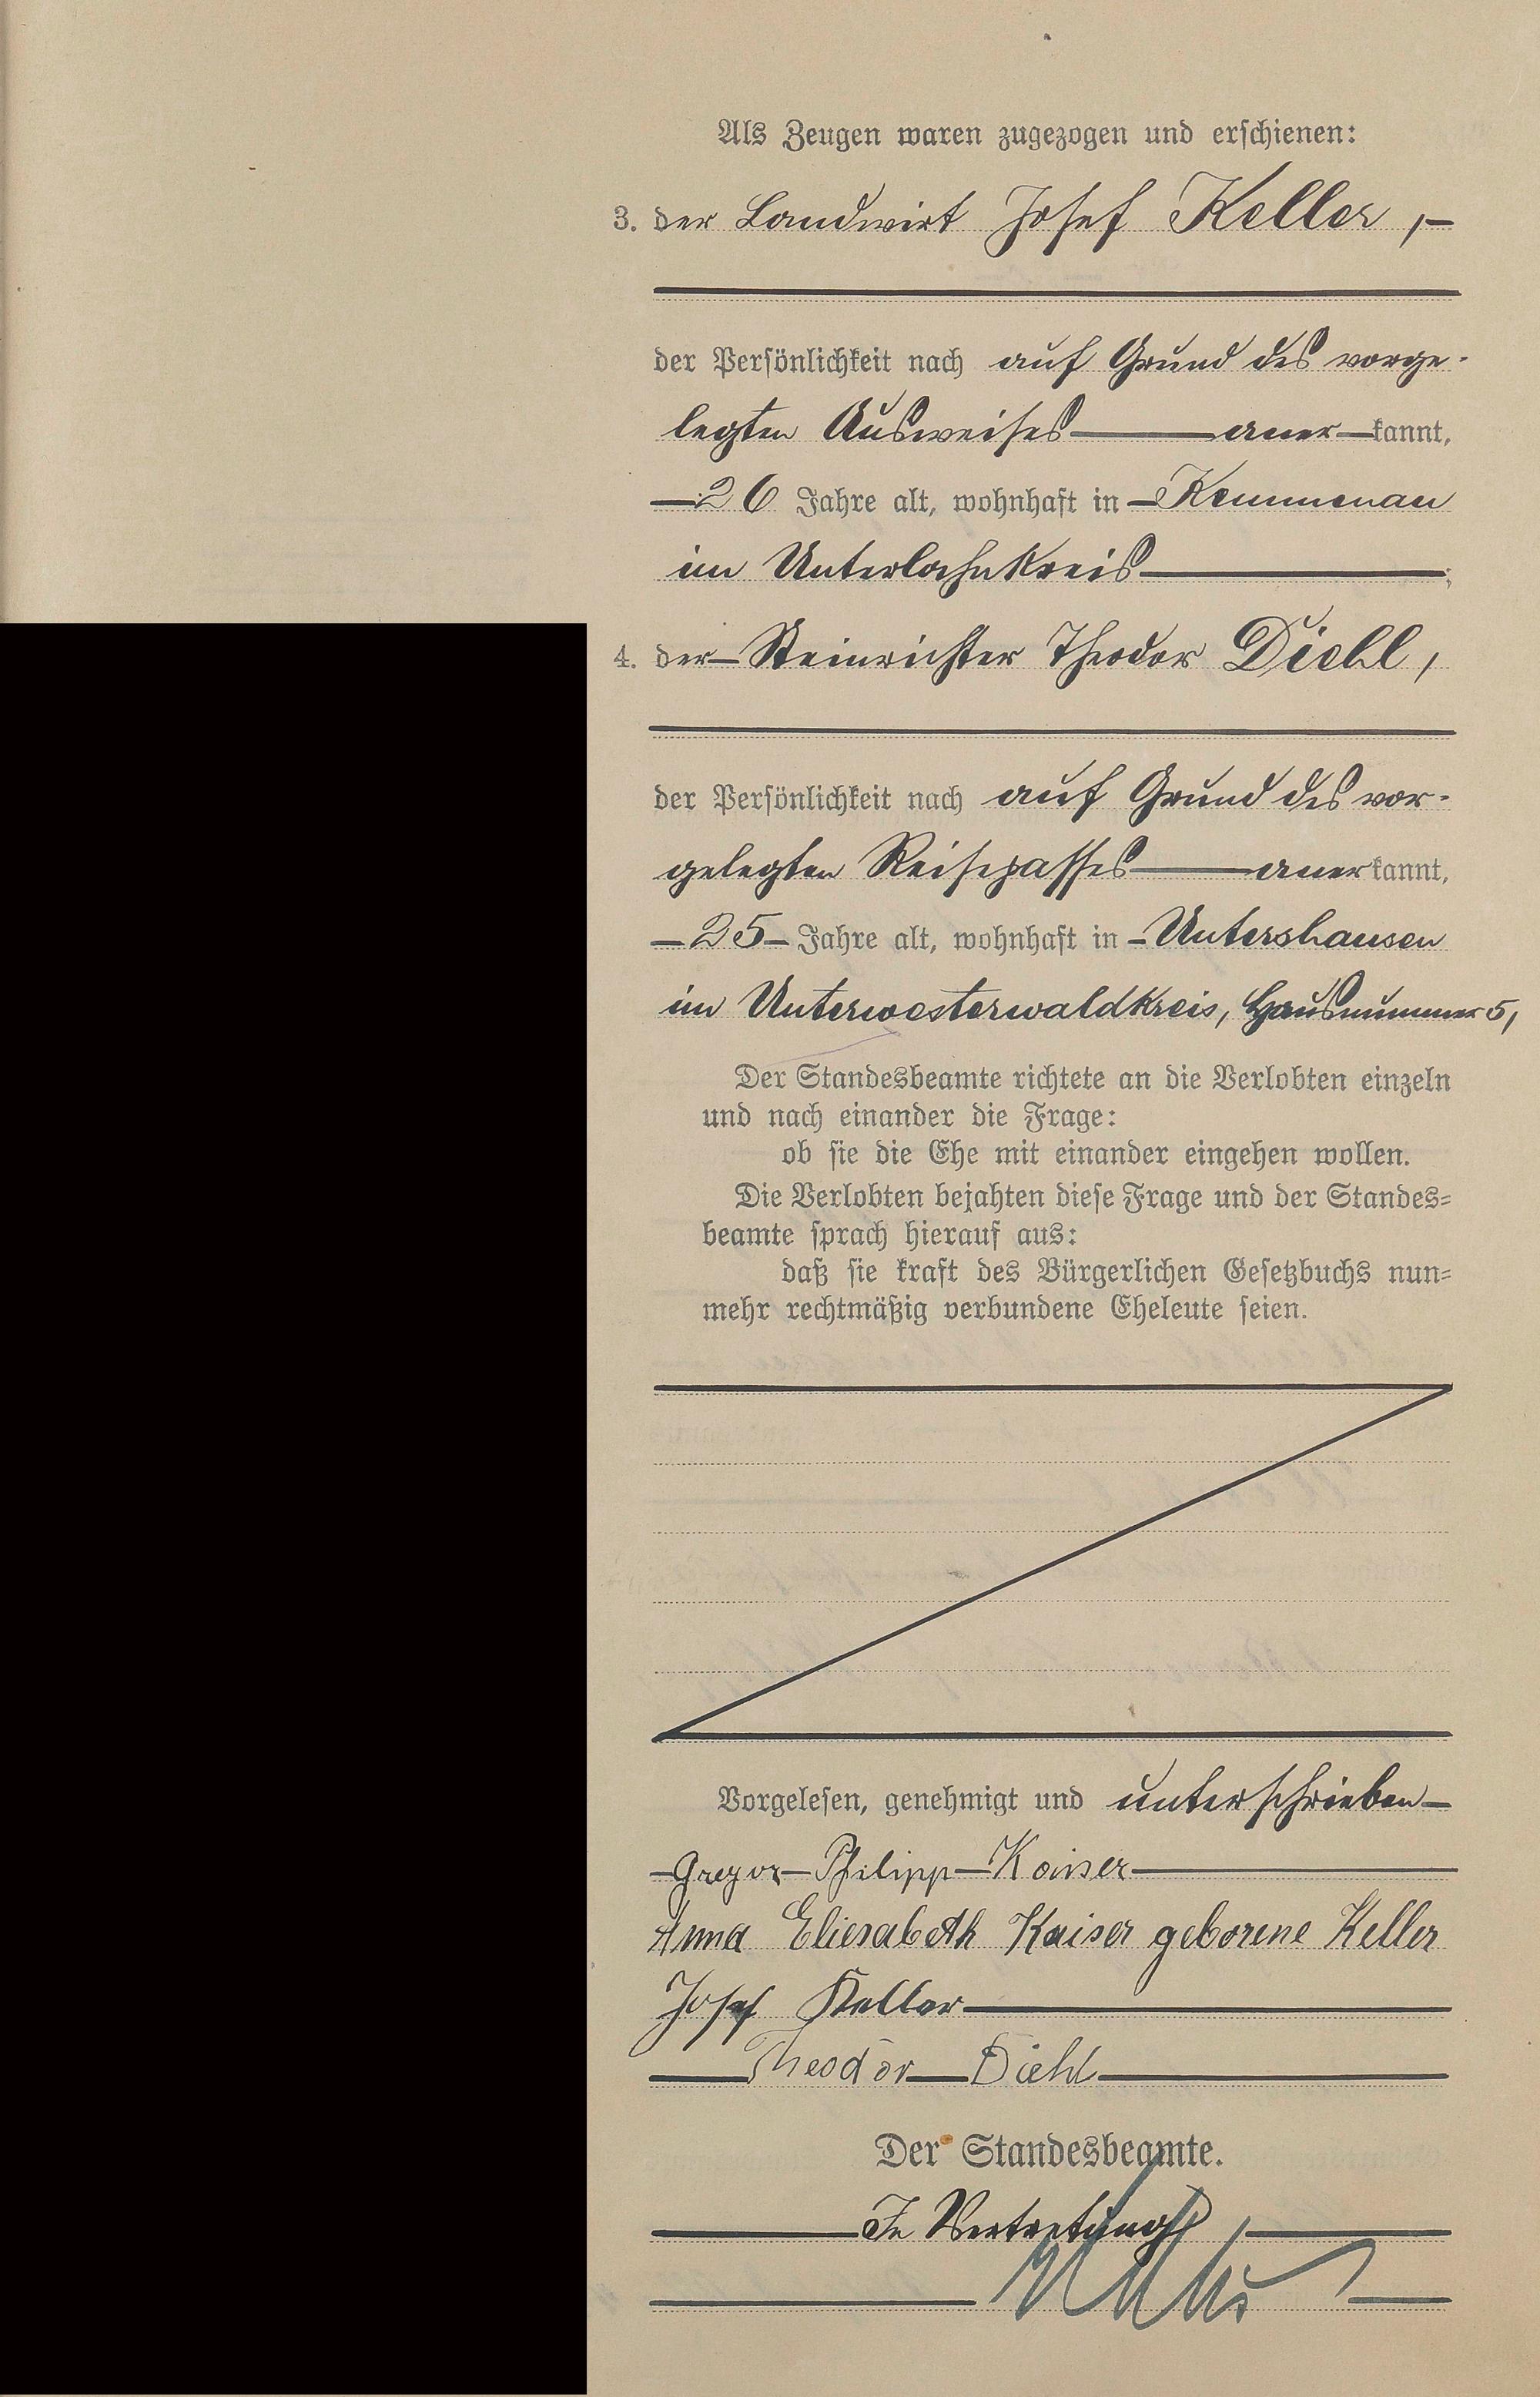 Als Zeugen waren zugezogen und erschienen:
3. der Landwirt Josef Keller,
der Persönlichkeit nach auf Grund des vorge-
legten Ausweises aner kannt,
26 Jahre alt, wohnhaft in Kemmenau
im Unterlahnkreis;
4. der Steinrichter Theodor Diehl,
der Persönlichkeit nach auf Grund des vor-
gelegten Reisepasses aner kannt,
25 Jahre alt, wohnhaft in Untershausen
im Unterwesterwaldkreis, Hausnummer 5,
Der Standesbeamte richtete an die Verlobten einzeln
und nach einander die Frage:
ob sie die Ehe mit einander eingehen wollen.
Die Verlobten bejahten diese Frage und der Standes-
beamte sprach hierauf aus:
daß sie kraft des Bürgerlichen Gesetzbuchs nun-
mehr rechtmäßig verbundene Eheleute seien.
Vorgelesen, genehmigt und unterschrieben
Gregor Philipp Kaiser
Anna Eliesabeth Kaiser geborene Keller
Josef Keller
Theodor Diehl
Der Standesbeamte.
In Vertretung